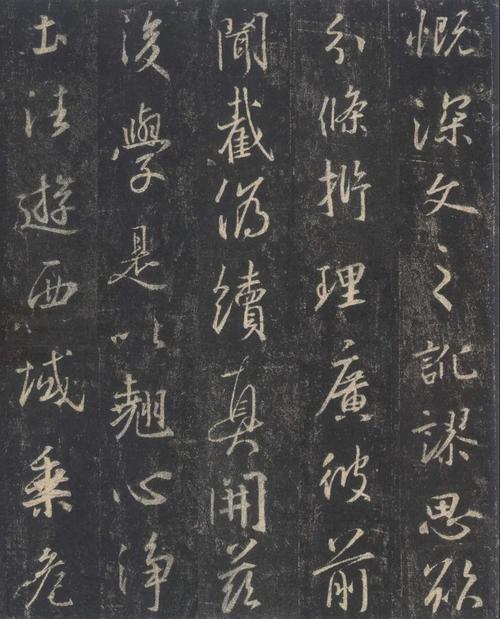 慨深文之訛謬思欲
分條析理廣彼前
聞截偽續真開茲
後學是以翹心淨
土法遊西域乗危